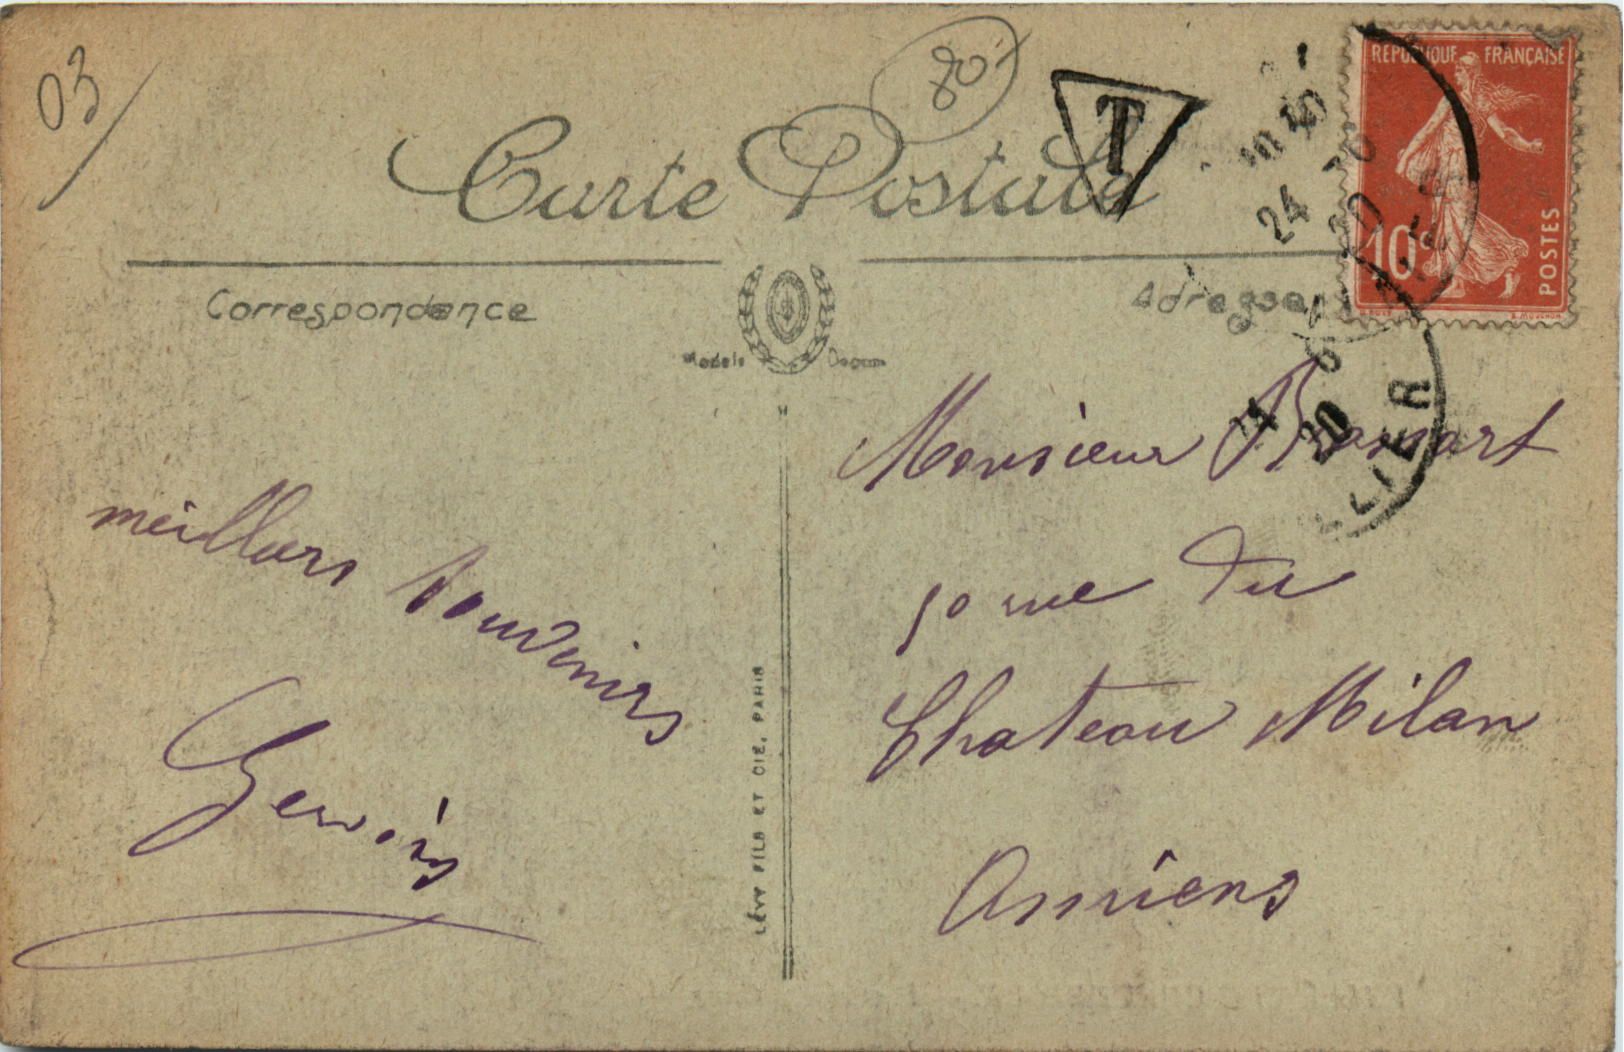 03
80
T
Carte Postale
RÉPUBLIQUE FRANÇAISE
10c
POSTES
24
20
Correspondance
Adresse
Modèle
20
LIER
Monsieur Brassart
meillurs souvenirs
50 rue du
Chateau Milan
Gervais
Amiens
LÉVY FILS ET CIE, PARIS